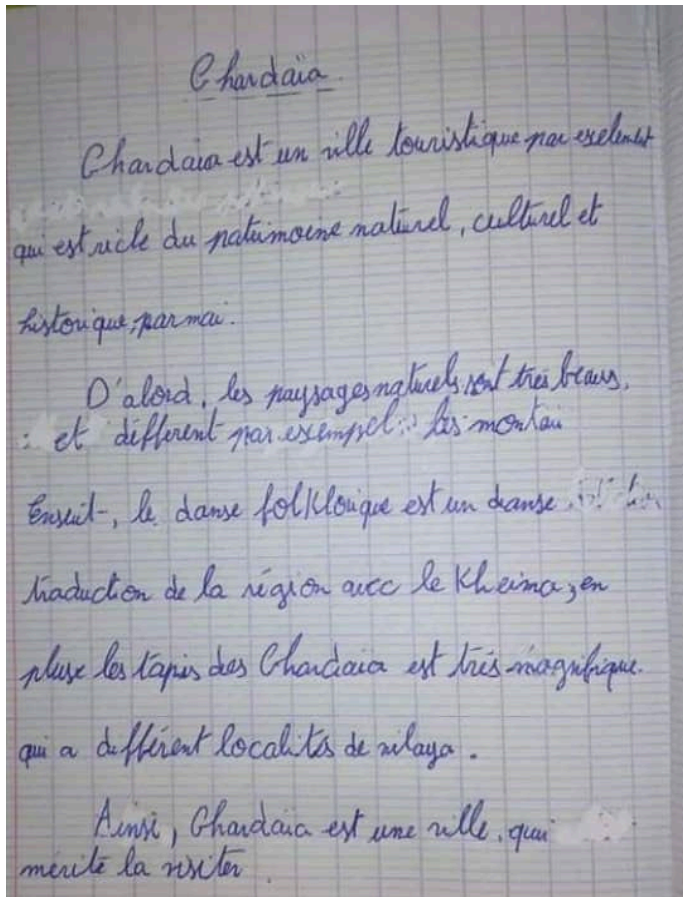 Ghardaïa
Ghardaia est un ville touristique par exelent
qui est riche du patrimoine naturel, culturel et
historique, parmai.
D'abord, les paysages naturels sont très beaus,
et different par exempel : les montai
Ensuit, le danse folklorique est un danse
traduction de la région avec le Kheima, en
pluse les tapis des Ghardaia est très magnifique.
qui a différent localités de wilaya.
Ainsi, Ghardaia est une ville, qui
mérite la visiter.